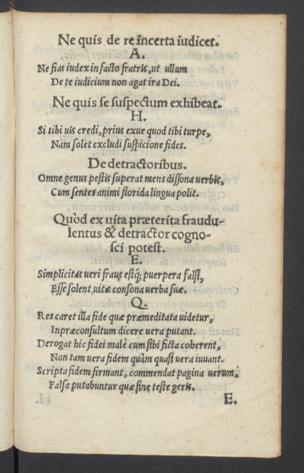 Ne quis de re incerta iudicet.
A.
Ne fias iudex in facto fratris, ut ullum
De te iudicium non agat ira Dei.
Ne quis se suspectum exhibeat.
H.
Si tibi uis credi, prius exue quod tibi turpe,
Nam solet excludi suspicione fides.
De detractoribus.
Omne genus pestis superat mens dissona uerbis,
Cum sentes animi florida lingua polit.
Quòd ex uita præterita fraudu-
lentus & detractor cogno-
sci potest.
E.
Simplicitas ueri fraus estq; puerpera falsi,
Esse solent uitæ consona uerba suæ.
Q.
Res caret illa fide quæ præmeditata uidetur,
Inpræconsultum dicere uera putant.
Derogat hic fidei malè cum sibi ficta coherent,
Non tam uera fidem quàm quasi uera iuuant.
Scripta fidem firmant, commendat pagina uerum,
Falsa putabuntur quæ sine teste geris.
E.